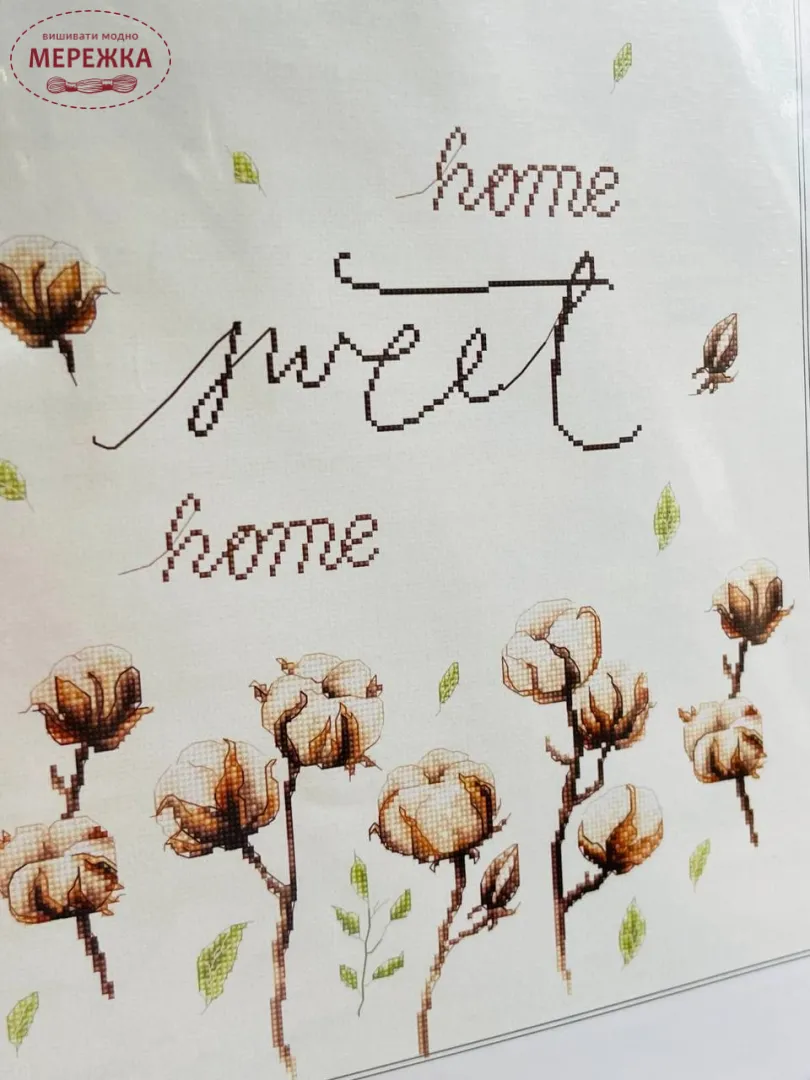 вишивати модно
МЕРЕЖКА
home
sweet
home